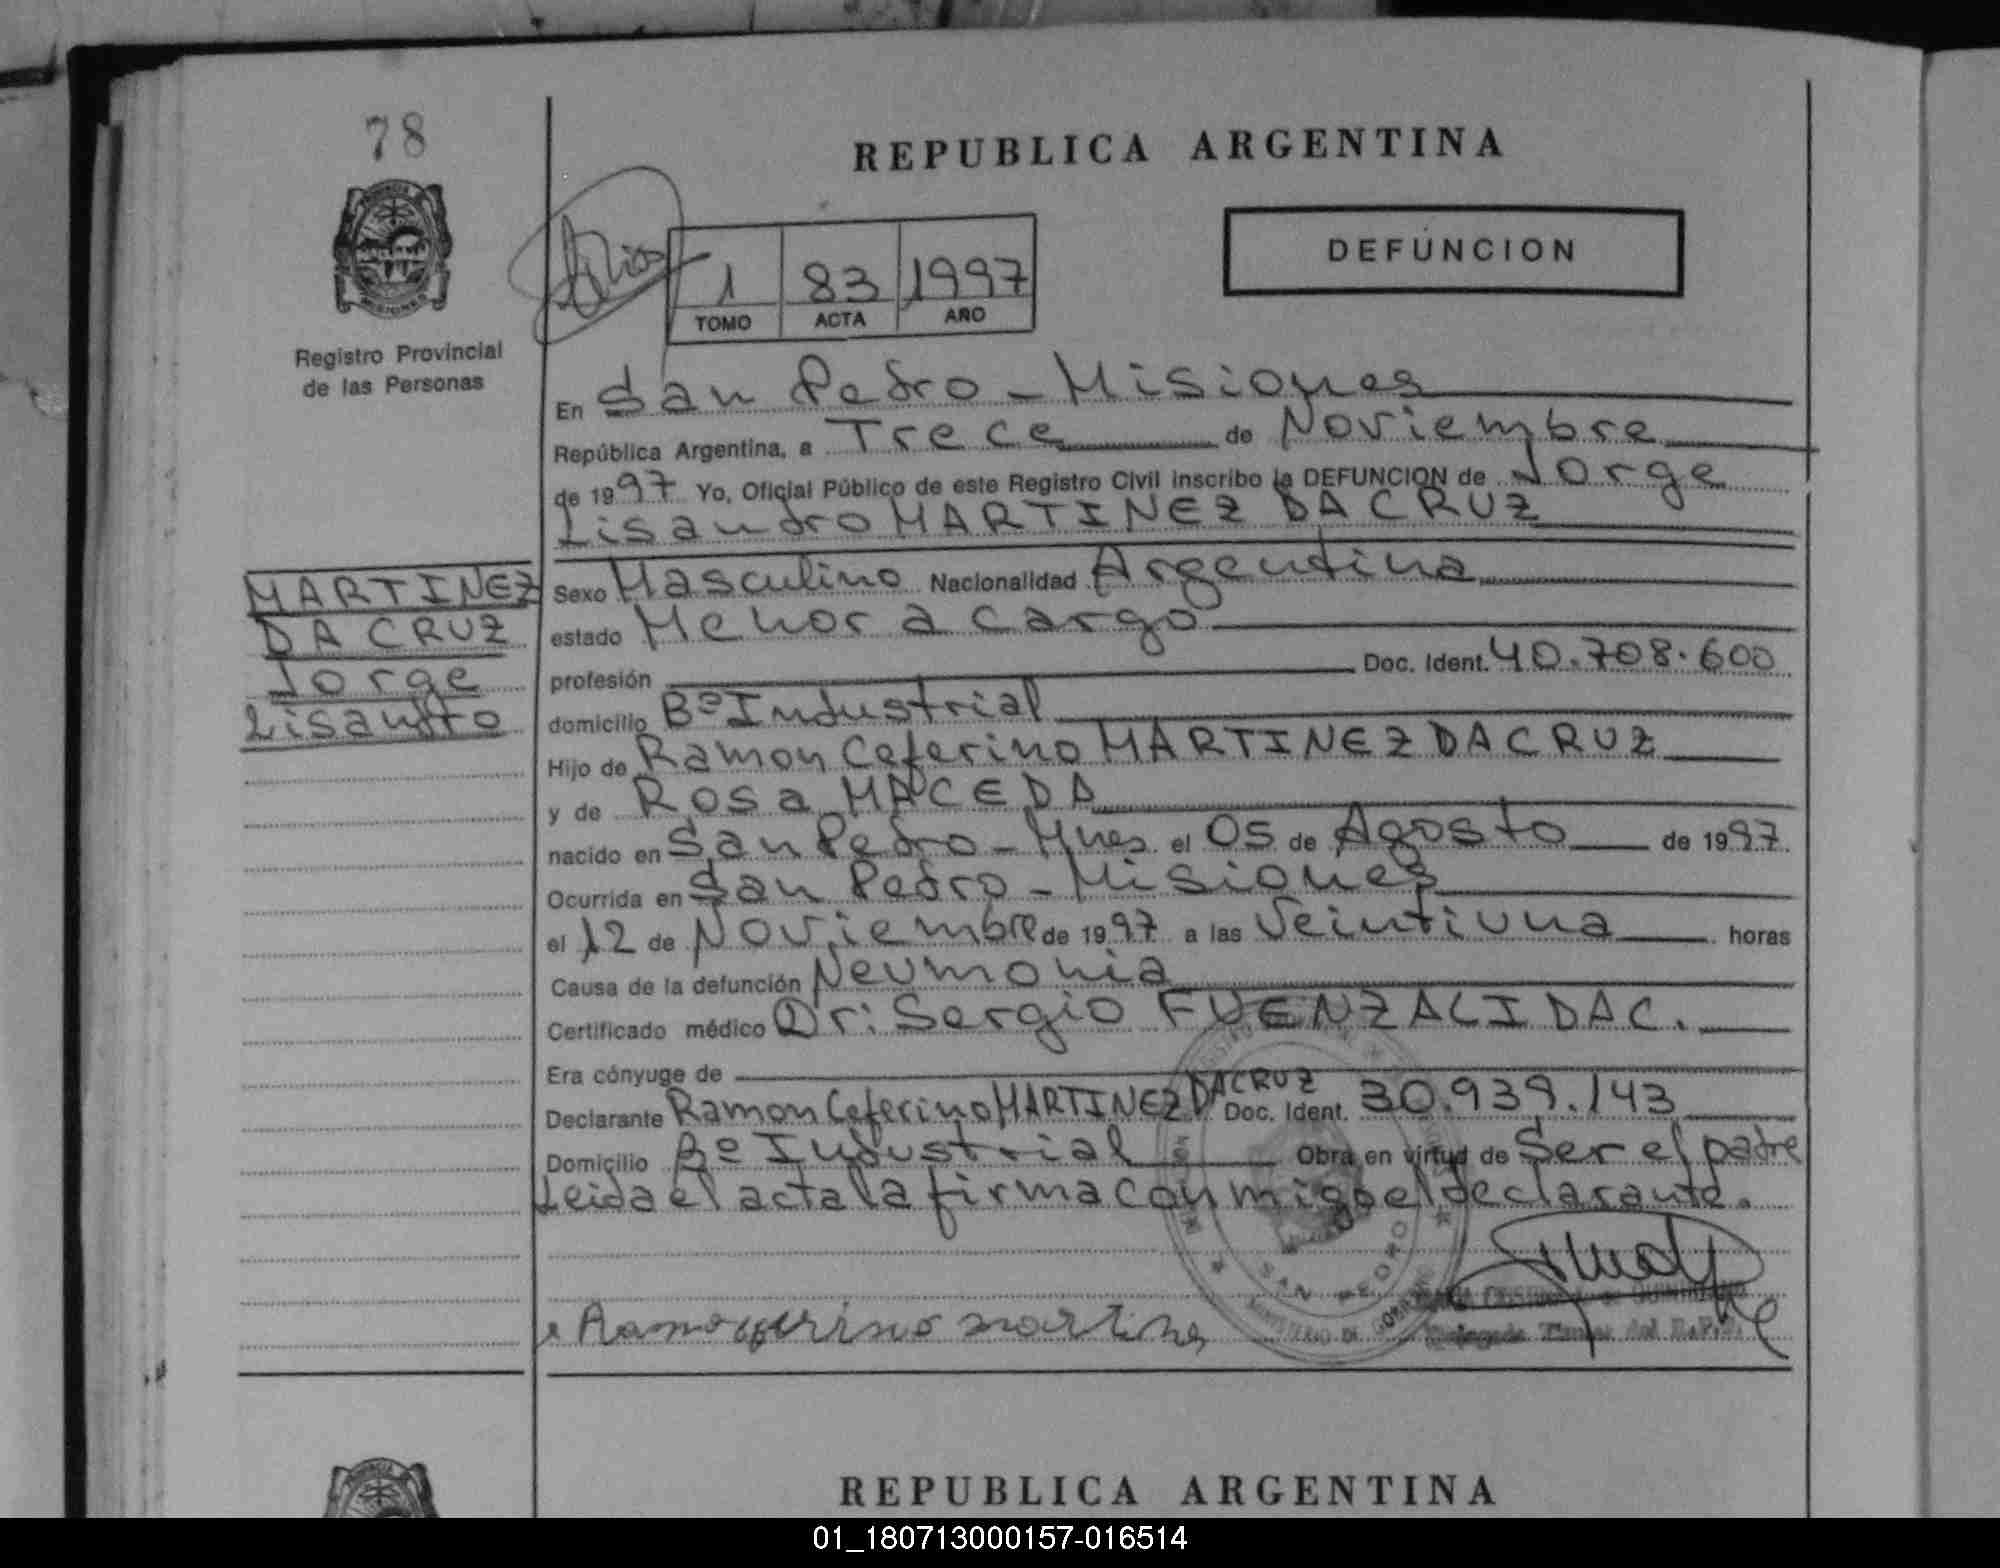 78
REPUBLICA ARGENTINA
DEFUNCION
1 83 1997
TOMO ACTA AÑO
Registro Provincial
de las Personas
En San Pedro - Misiones
República Argentina, a Trece de Noviembre
de 1997 Yo, Oficial Público de este Registro Civil inscribo la DEFUNCION de Jorge
Lisandro MARTINEZ DA CRUZ
MARTINEZ
DA CRUZ
Jorge
Lisandro
Sexo Masculino Nacionalidad Argentina
estado Menor a cargo
profesión Doc. Ident. 40.708.600
domicilio Bº Industrial
Hijo de Ramon Ceferino MARTINEZ DA CRUZ
y de Rosa MACEDA
nacido en San Pedro - Mnes el 05 de Agosto de 1997
Ocurrida en San Pedro - Misiones
el 12 de Noviembre de 1997 a las Veintiuna horas
Causa de la defunción Neumonia
Certificado médico Dr: Sergio FUENZALIDA C.
Era cónyuge de
Declarante Ramon Ceferino MARTINEZ DA CRUZ Doc. Ident. 30.939.143
Domicilio Bº Industrial Obra en virtud de Ser el padre
Leida el acta la firma conmigo el declarante.
SAN PEDRO
MINISTERIO DE GOBIERNO
REPUBLICA ARGENTINA
01_180713000157-016514